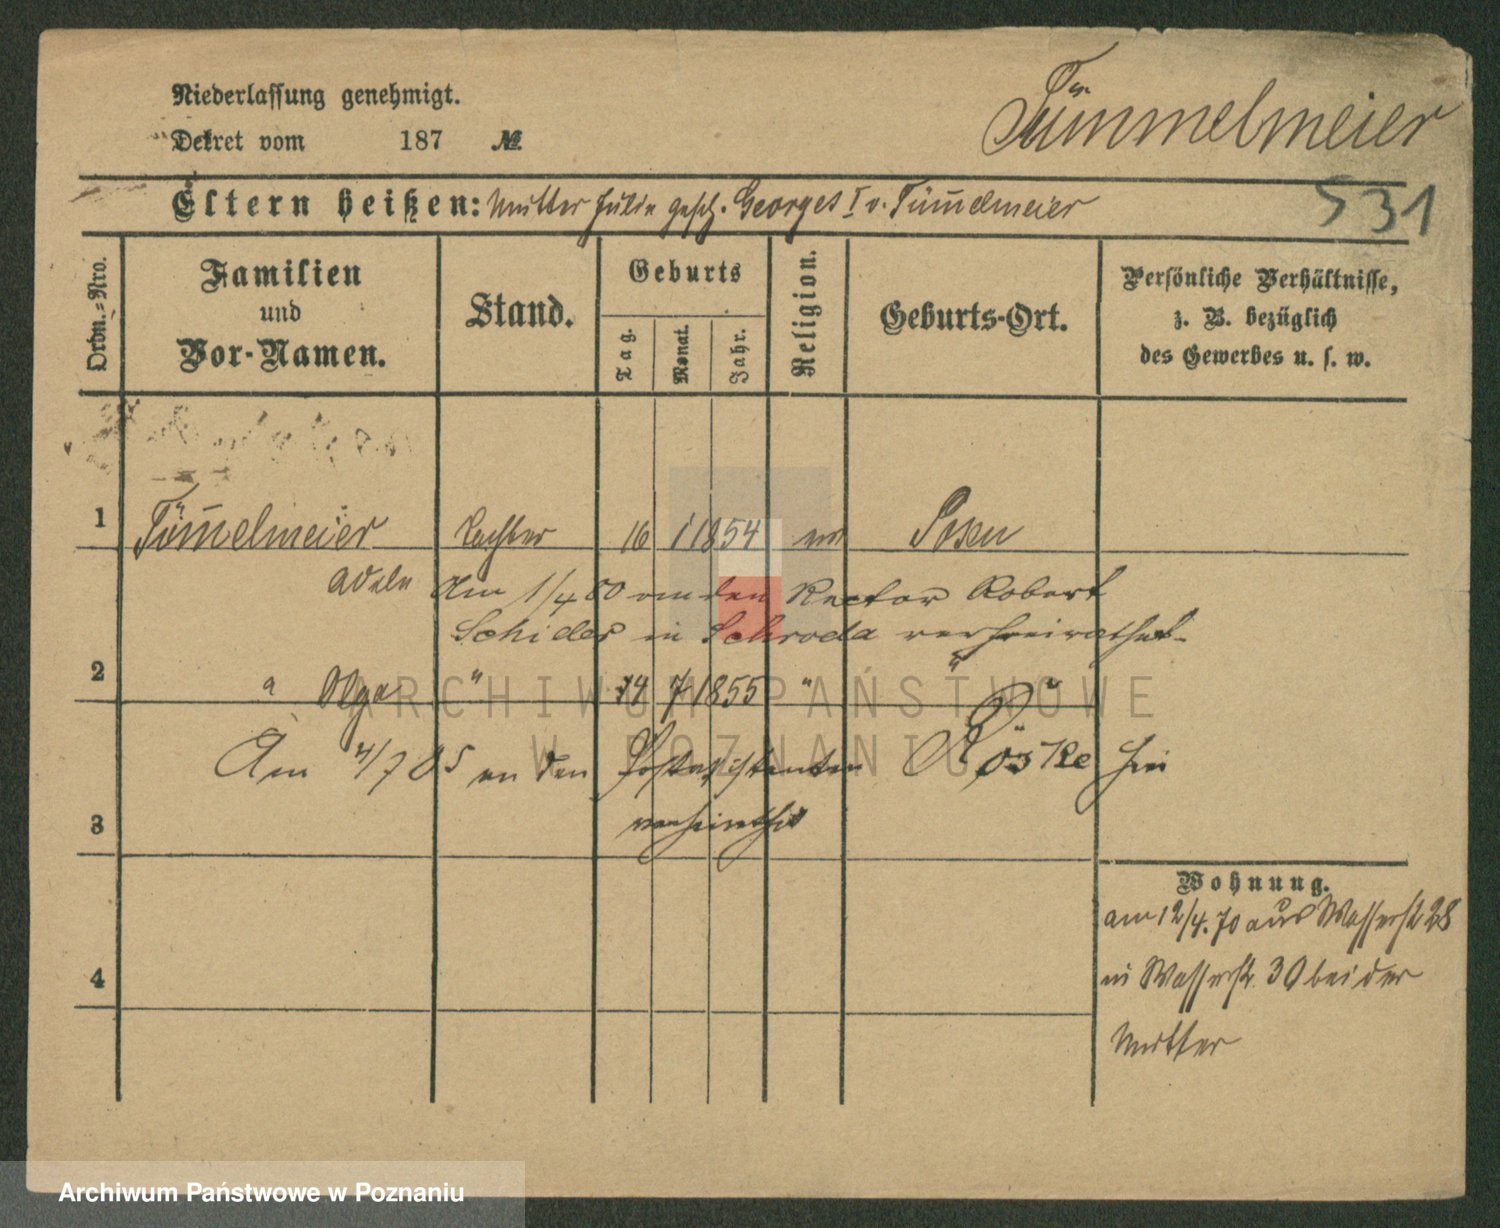 Niederlassung genehmigt.
Dekret vom 187 №
Tümmelmeier
531
Eltern heißen: Mutter Julie gesch. Georges I v. Tümmelmeier
Ordn.-Nro.
Familien
und
Vor-Namen.
Stand.
Geburts
Tag.
Monat.
Jahr.
Religion.
Geburts-Ort.
Persönliche Verhältnisse,
z. B. bezüglich
des Gewerbes u. s. w.
1 Tümmelmeier Tochter 16 1 1854 Posen
Adele Am 1/4 80 an den Rector Robert
in Schroda verheirathet
2 " Olga " 14 7 1855 " "
Am 4/7 85 an den Postassistenten Röske hier
3 verheirathet
Wohnung.
am 12/4.70 aus Wasserstr 28
4 in Wasserstr. 30 bei der
Mutter
ARCHIWUM PAŃSTWOWE
W POZNANIU
Archiwum Państwowe w Poznaniu